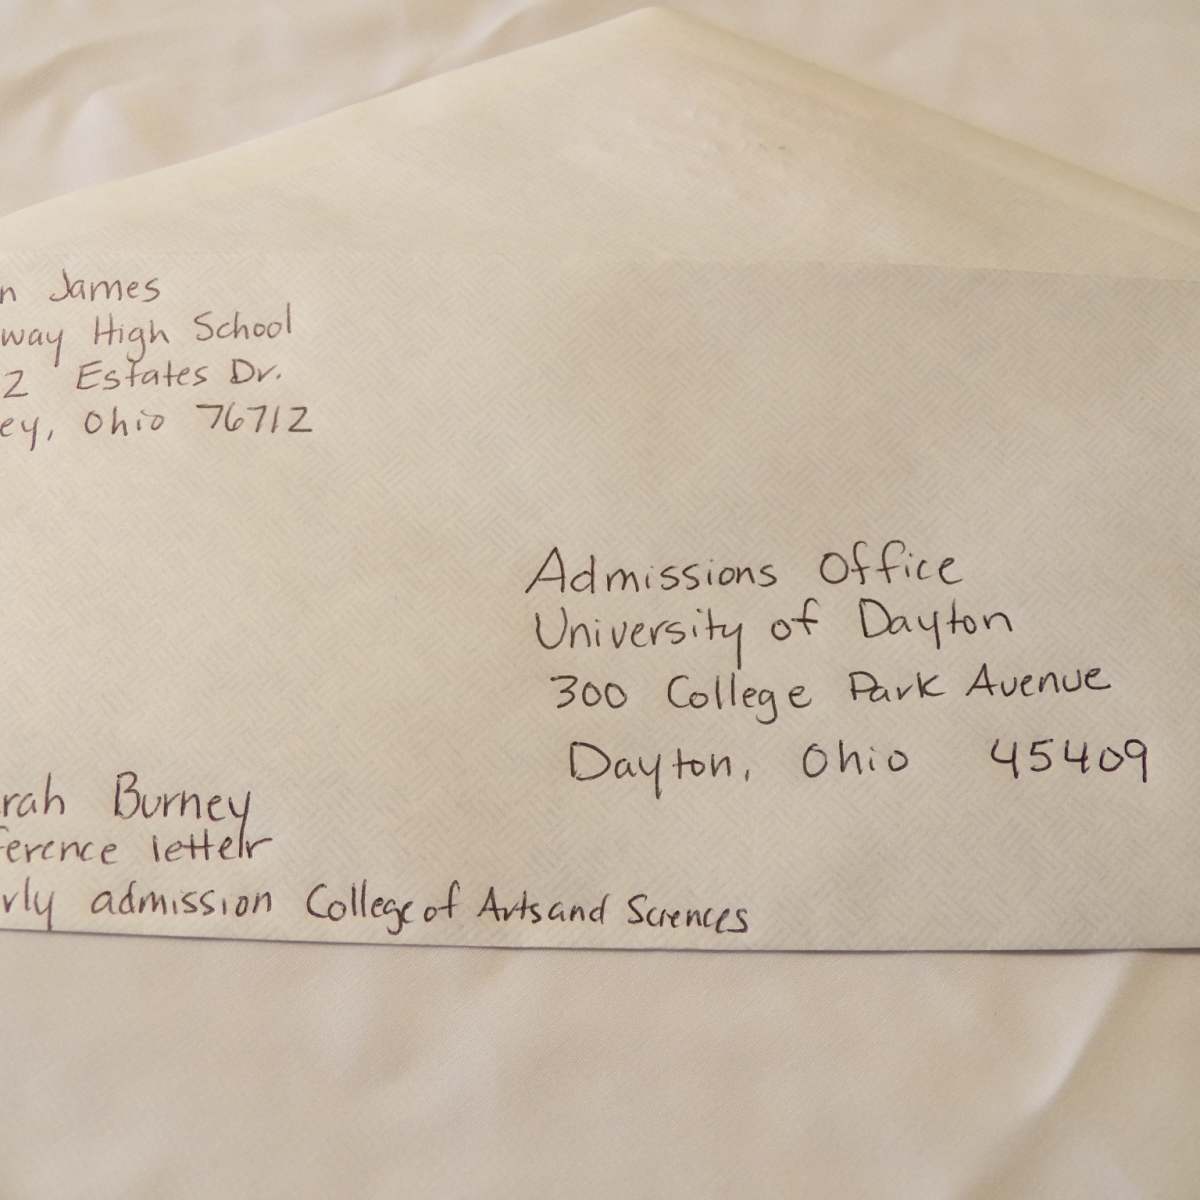 n James
way High School
2 Estates Dr.
ey, Ohio 76712
Admissions Office
University of Dayton
300 College Park Avenue
Dayton, Ohio 45409
rah Burney
ference letter
rly admission College of Arts and Sciences